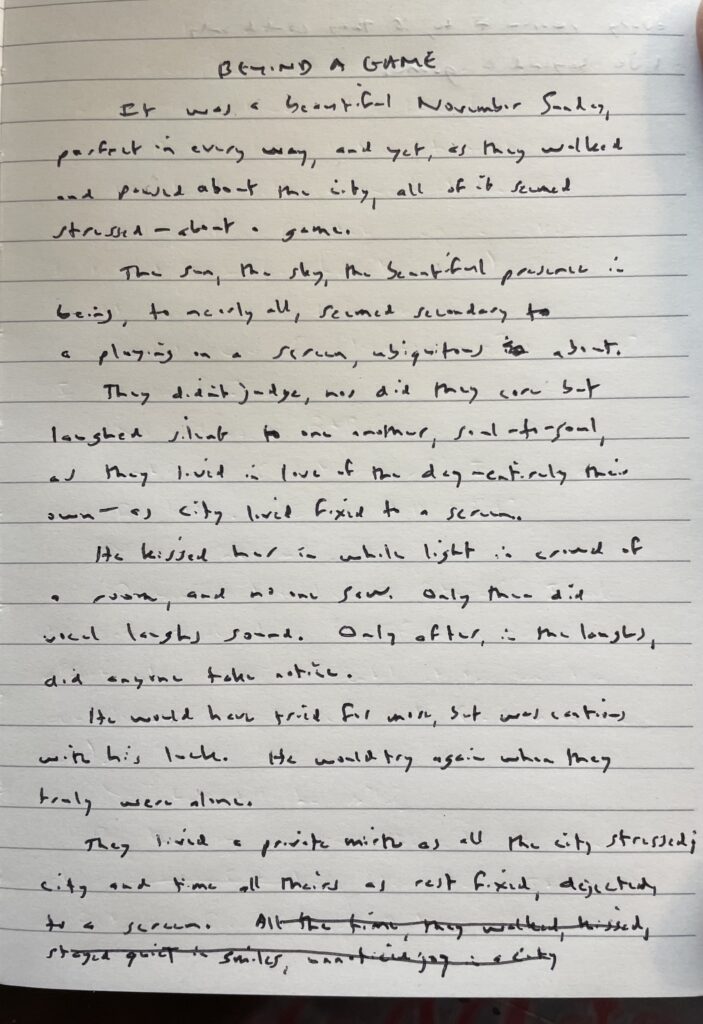 BEHIND A GAME
It was a beautiful November Sunday,
perfect in every way, and yet, as they walked
and paused about the city, all of it seemed
stressed — about a game.
The sun, the sky, the beautiful presence in
being, to nearly all, seemed secondary to
a playing on a screen, ubiquitous about.
They didn't judge, nor did they care but
laughed silent to one another, soul-to-soul,
as they lived in love of the day — entirely their
own — as city lived fixed to a screen.
He kissed her in white light in crowd of
a room, and no one saw. Only then did
vocal laughs sound. Only after, in the laughs,
did anyone take notice.
He would have tried for more, but was cautious
with his luck. He would try again when they
truly were alone.
They lived a private mirth as all the city stressed;
city and time all theirs as rest fixed, dejected,
to a screen. All the time, they walked, kissed,
stayed quiet in smiles, unnoticed joy in a city